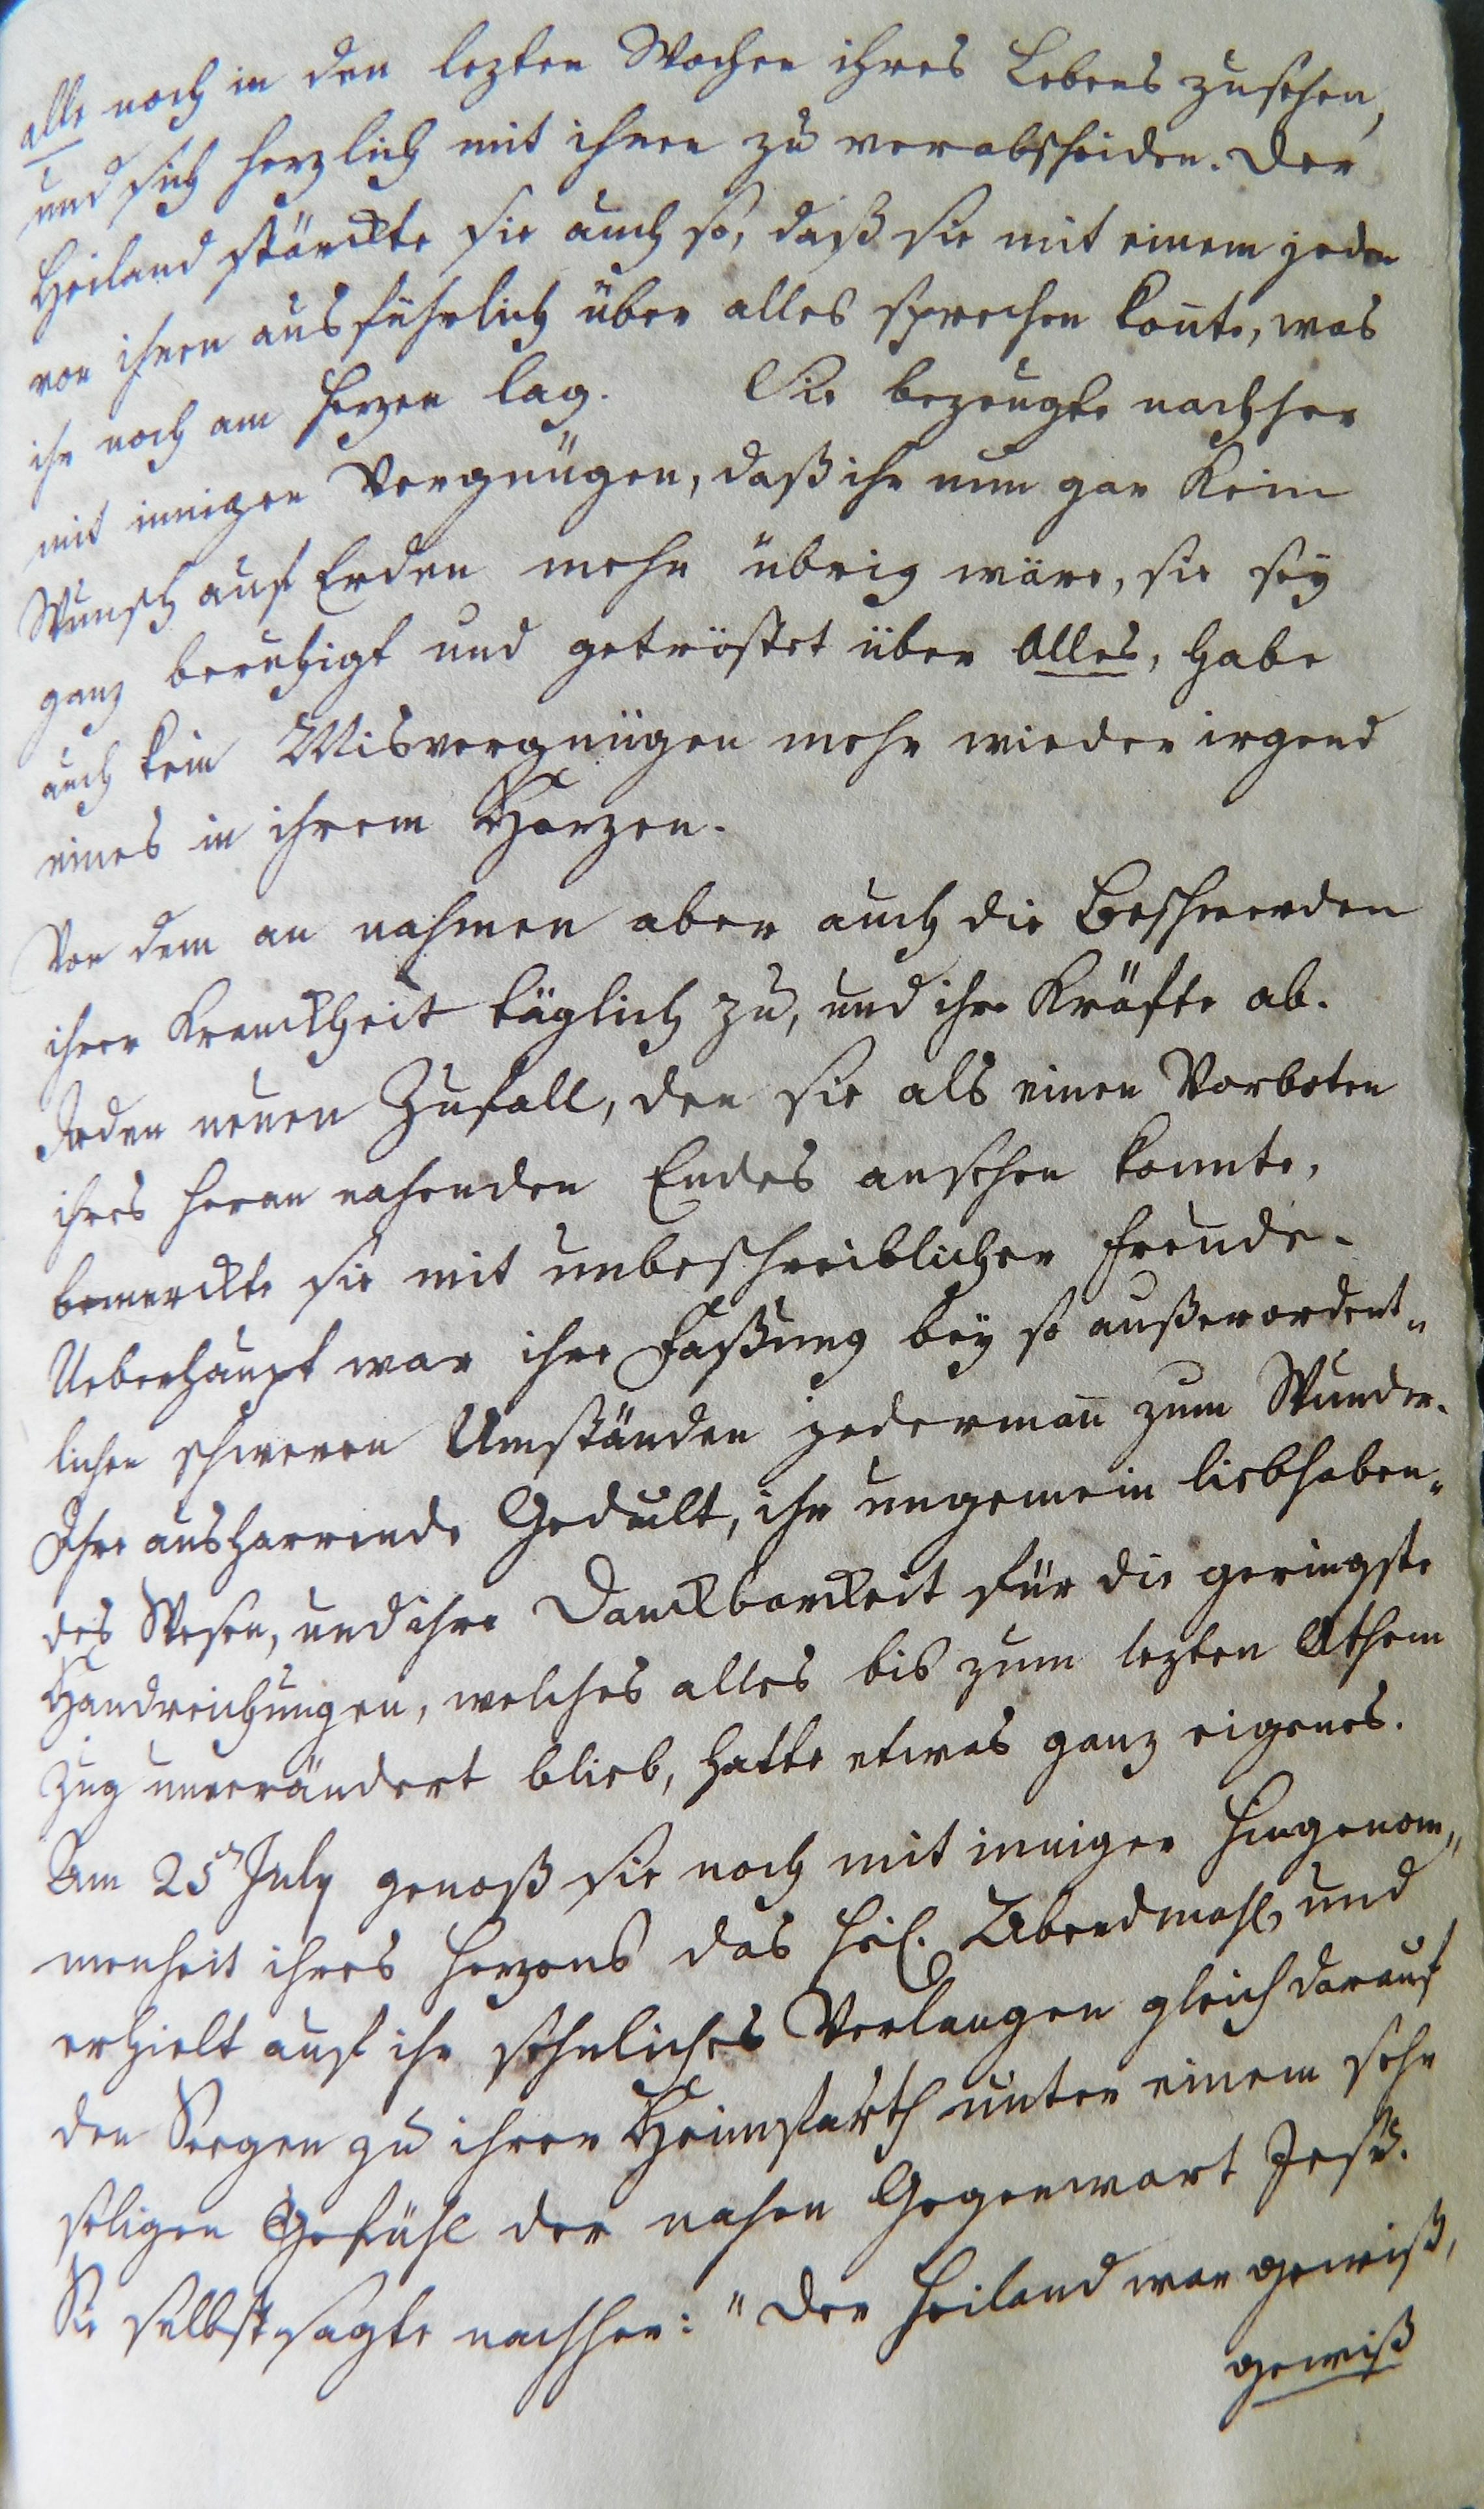 alle noch in den lezten Wochen ihres Lebens zusehen,
und sich herzlich mit ihnen zu verabscheiden. Der
Heiland stärckte sie auch so, daß sie mit einem jeden
von ihnen ausführlich über alles sprechen konte, was
ihr noch am Herzen lag. Sie bezeugte nachher
mit innigen Vergnügen, daß ihr nun gar kein
Wunsch auf Erden mehr übrig wäre, sie sey
ganz beruhigt und getröstet über Alles, habe
auch kein Misvergnügen mehr wieder irgend
eines in ihrem Herzen.
Von dem an nahmen aber auch die Beschwerden
ihrer Kranckheit täglich zu, und ihre Kräfte ab.
Jeden neuen Zufall, den sie als einen Vorboten
ihres heran nahenden Endes ansehen konnte,
bemerckte sie mit unbeschreiblicher Freude.
Ueberhaupt war ihre Faßung bey so außerordent-
lichen schweren Umständen jedermañ zum Wunder.
Ihre ausharrende Gedult, ihr ungemein liebhaben-
des Wesen, und ihre Danckbarckeit für die geringste
Handreichungen, welches alles bis zum lezten Athem
Zug unverändert blieb, hatte etwas ganz eigenes.
Am 25n July genoß sie noch mit inniger Hingenom-
menheit ihres Herzens das heil. Abendmahl, und
erhielt auf ihr sehnliches Verlangen gleich darauf
den Seegen zu ihrer Heimfarth unter einem sehr
seligen Gefühl der nahen Gegenwart Jesu.
Sie selbst sagte nachher: "Der Heiland war gewiß,
gewiß